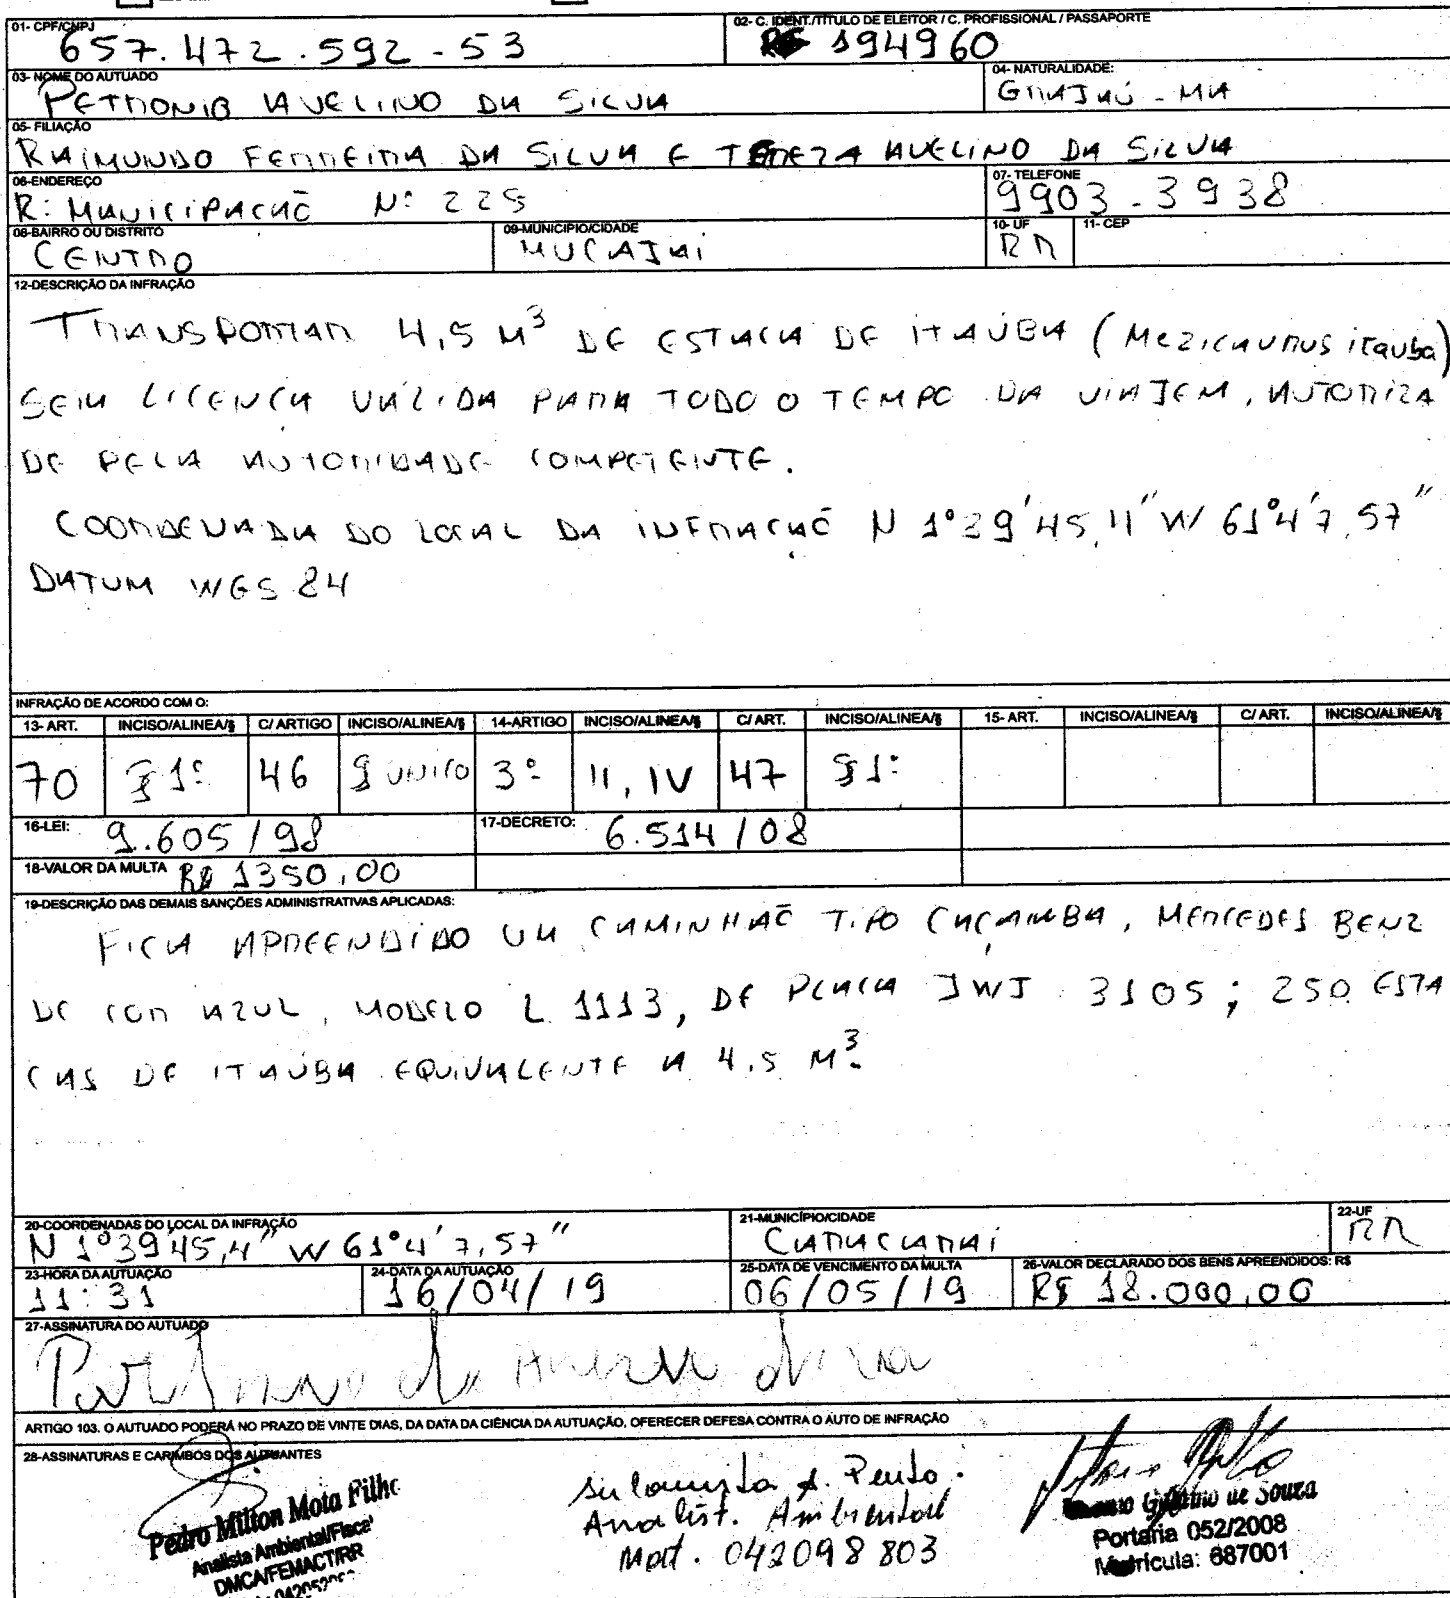 01- CPF/CNPJ
657.472.592-53
02- C. IDENT./TÍTULO DE ELEITOR / C. PROFISSIONAL / PASSAPORTE
194960
03- NOME DO AUTUADO
PETRONIO AVELINO DA SILVA
04- NATURALIDADE:
GRAJAÚ - MA
05- FILIAÇÃO
RAIMUNDO FERREIRA DA SILVA E TEREZA AVELINO DA SILVA
06-ENDEREÇO
R: MUNICIPACÃO Nº 225
07- TELEFONE
9903-3938
08-BAIRRO OU DISTRITO
CENTRO
09-MUNICIPIO/CIDADE
MUCAJAI
10- UF
RR
11- CEP
12-DESCRIÇÃO DA INFRAÇÃO
TRANSPORTAR 4,5 M³ DE ESTACA DE ITAÚBA (Mezilaurus itauba)
SEM LICENÇA VÁLIDA PARA TODO O TEMPO DA VIAJEM, AUTORIZA
DE PELA AUTORIDADE COMPETENTE.
COORDENADA DO LOCAL DA INFRAÇÃO N 1°39'45,4" W 61°4'7,57"
DATUM WGS 84
INFRAÇÃO DE ACORDO COM O:
13- ART. INCISO/ALINEA/§ C/ ARTIGO INCISO/ALINEA/§ 14-ARTIGO INCISO/ALINEA/§ C/ ART. INCISO/ALINEA/§ 15- ART. INCISO/ALINEA/§ C/ ART. INCISO/ALINEA/§
70 § 1º 46 § UNICO 3º II, IV 47 § 1º
16-LEI: 9.605/98
17-DECRETO: 6.514/08
18-VALOR DA MULTA R$ 1350,00
19-DESCRIÇÃO DAS DEMAIS SANÇÕES ADMINISTRATIVAS APLICADAS:
FICA APREENDIDO UM CAMINHÃO TIPO CAÇAMBA, MERCEDES BENZ
DE COR AZUL, MODELO L 1113, DE PLACA JWJ 3105; 250 ESTA
CAS DE ITAÚBA EQUIVALENTE A 4,5 M³.
20-COORDENADAS DO LOCAL DA INFRAÇÃO
N 1°39'45,4" W 61°4'7,57"
21-MUNICÍPIO/CIDADE
CARACARAÍ
22-UF
RR
23-HORA DA AUTUAÇÃO
11:31
24-DATA DA AUTUAÇÃO
16/04/19
25-DATA DE VENCIMENTO DA MULTA
06/05/19
26-VALOR DECLARADO DOS BENS APREENDIDOS: R$
R$ 18.000,00
27-ASSINATURA DO AUTUADO
ARTIGO 103. O AUTUADO PODERÁ NO PRAZO DE VINTE DIAS, DA DATA DA CIÊNCIA DA AUTUAÇÃO, OFERECER DEFESA CONTRA O AUTO DE INFRAÇÃO
28-ASSINATURAS E CARIMBOS DOS AUTUANTES
Pedro Milton Mota Filho
Analista Ambiental/Fiscal
DMCA/FEMACT/RR
Analist. Ambiental
Mat. 042098803
de Souza
Portaria 052/2008
Matrícula: 687001